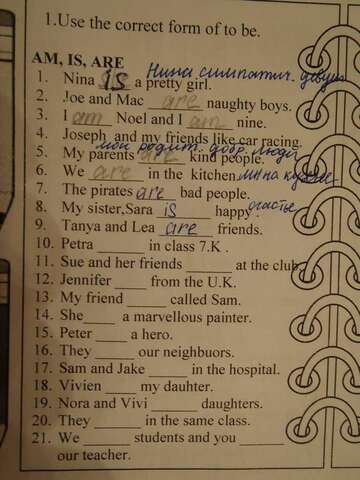 1.Use the correct form of to be.
AM, IS, ARE
Нина симпатич. девуш
1. Nina is a pretty girl.
2. Joe and Mac are naughty boys.
3. I am Noel and I am nine.
4. Joseph and my friends like car racing.
мои родит. добр. люди
5. My parents are kind people.
6. We are in the kitchen. мы на кухне
7. The pirates are bad people.
8. My sister,Sara is happy. счастье
9. Tanya and Lea are friends.
10. Petra ____ in class 7.K .
11. Sue and her friends ____ at the club.
12. Jennifer ____ from the U.K.
13. My friend ____ called Sam.
14. She ____ a marvellous painter.
15. Peter ____ a hero.
16. They ____ our neighbuors.
17. Sam and Jake ____ in the hospital.
18. Vivien ____ my dauhter.
19. Nora and Vivi ____ daughters.
20. They ____ in the same class.
21. We ____ students and you ____
our teacher.